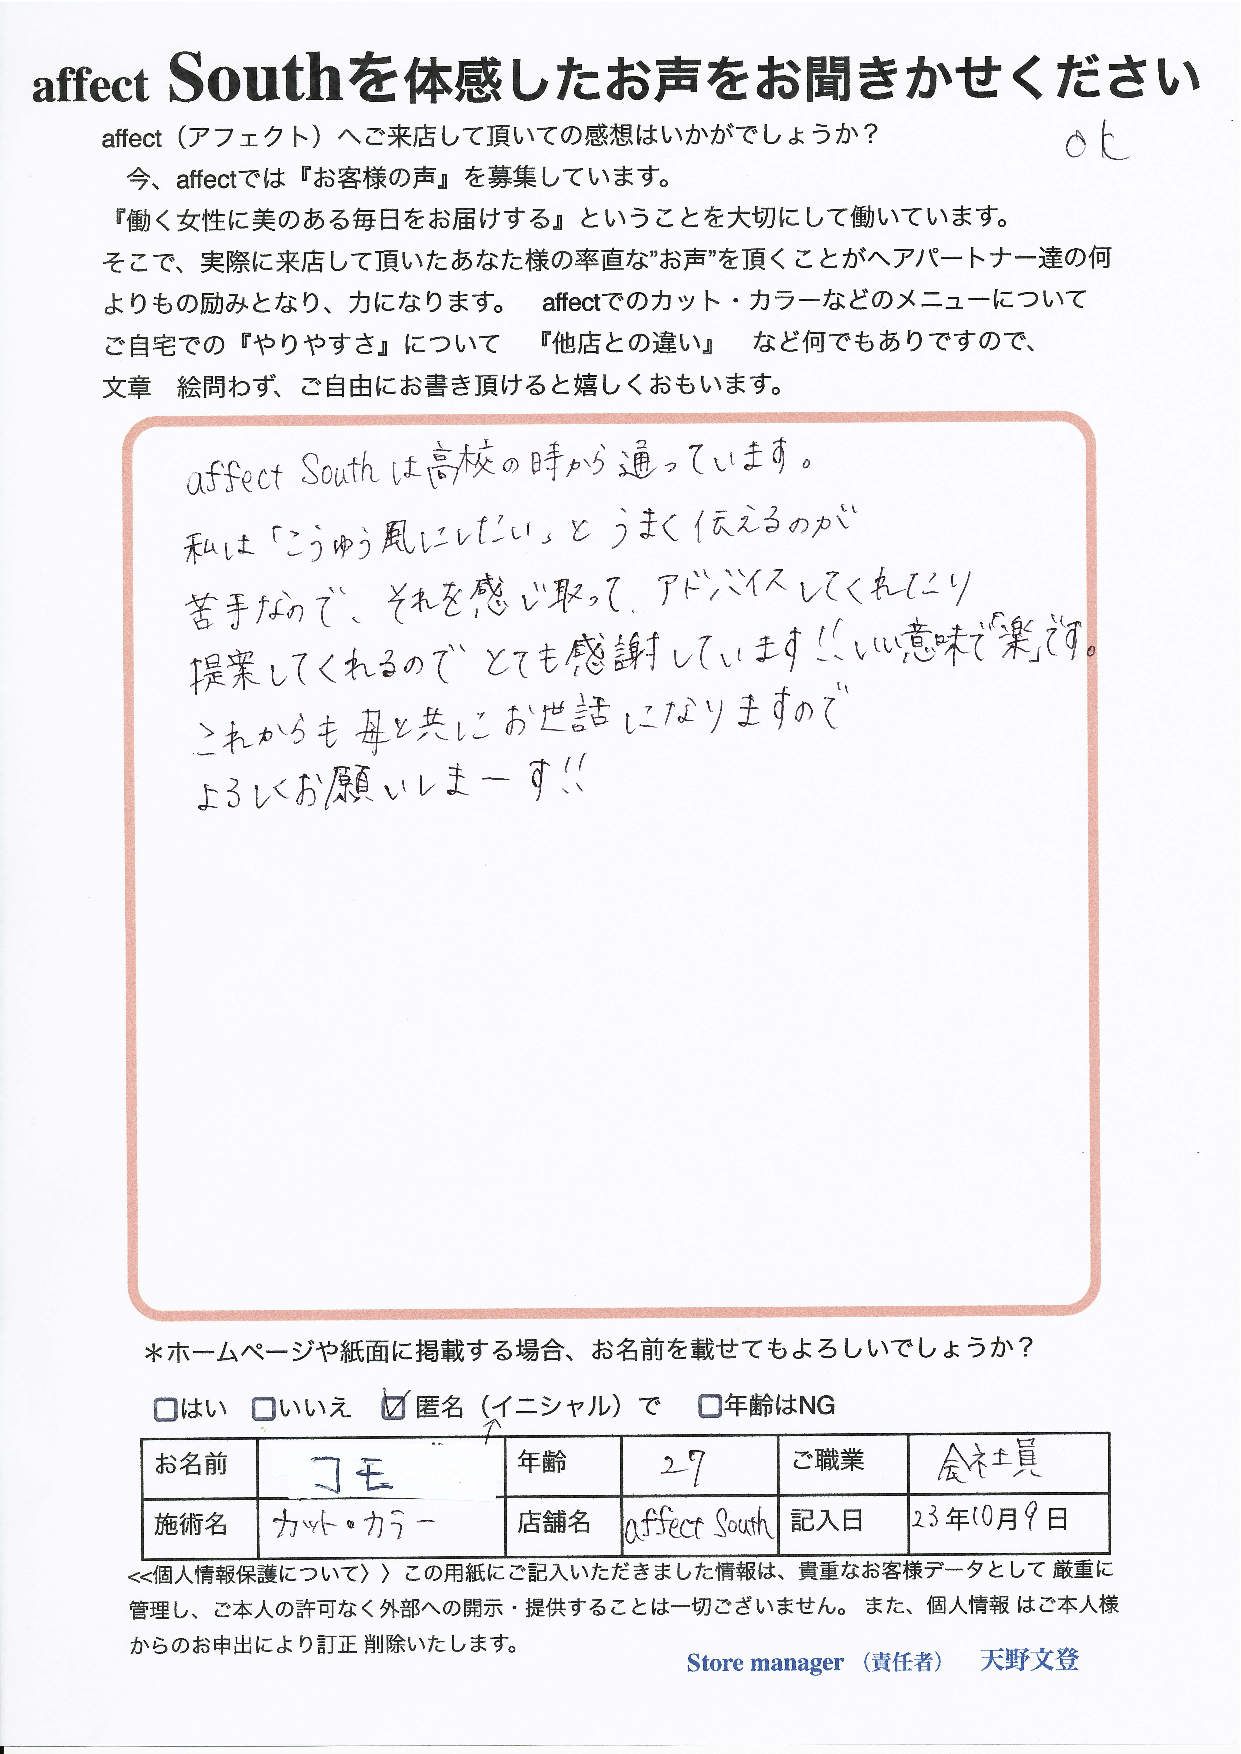 affect Southを体感したお声をお聞きかせください
affect（アフェクト）へご来店して頂いての感想はいかがでしょうか？
ok
今、affectでは『お客様の声』を募集しています。
『働く女性に美のある毎日をお届けする』ということを大切にして働いています。
そこで、実際に来店して頂いたあなた様の率直な”お声”を頂くことがヘアパートナー達の何
よりもの励みとなり、力になります。　affectでのカット・カラーなどのメニューについて
ご自宅での『やりやすさ』について　『他店との違い』　など何でもありですので、
文章　絵問わず、ご自由にお書き頂けると嬉しくおもいます。
affect Southは高校の時から通っています。
私は「こうゆう風にしたい」とうまく伝えるのが
苦手なので、それを感じ取って、アドバイスしてくれたり
提案してくれるのでとても感謝しています!!いい意味で「楽」です。
これからも母と共にお世話になりますので
よろしくお願いしまーす!!
＊ホームページや紙面に掲載する場合、お名前を載せてもよろしいでしょうか？
□はい　□いいえ　☑匿名（イニシャル）で　□年齢はNG
お名前 コモ 年齢 27 ご職業 会社員
施術名 カット・カラー 店舗名 affect South 記入日 23年10月9日
<<個人情報保護について〉〉この用紙にご記入いただきました情報は、貴重なお客様データとして 厳重に
管理し、ご本人の許可なく外部への開示・提供することは一切ございません。 また、個人情報 はご本人様
からのお申出により訂正 削除いたします。
Store manager （責任者）　天野文登